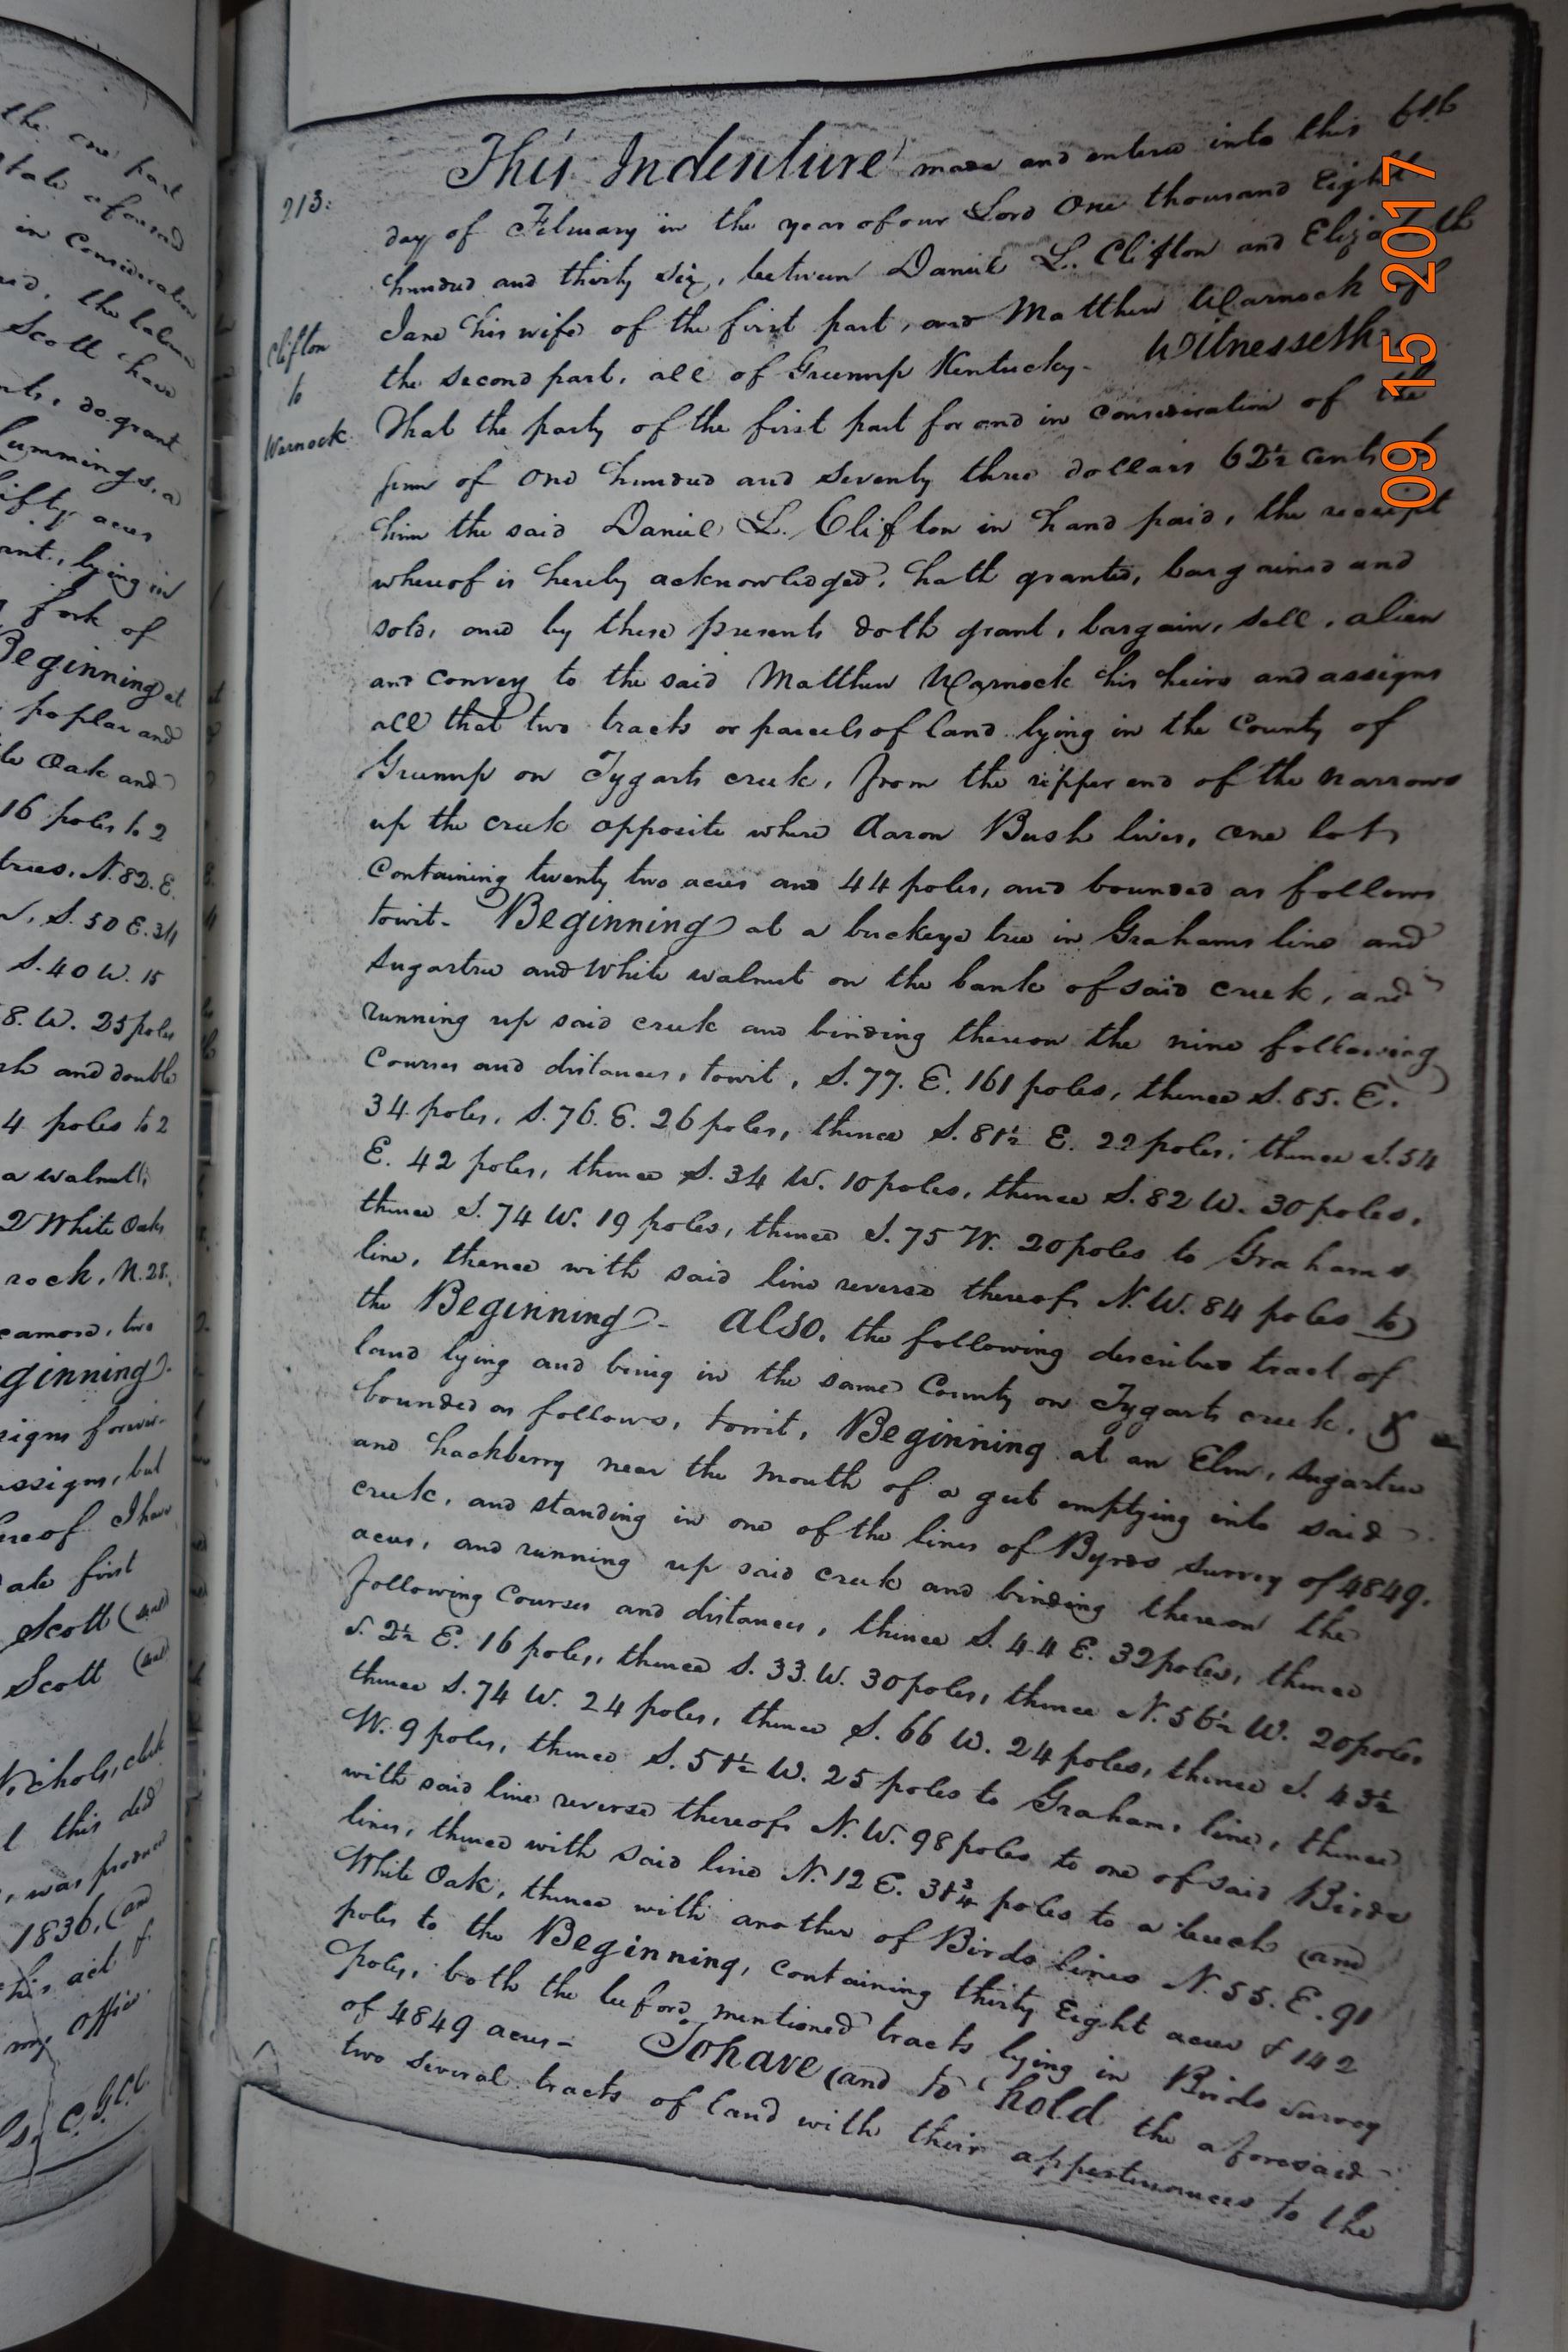 the one part
state aforesaid
in Consideration
Scott have
do grant
Cummings, a
fifty acres
lying in
fork of
Beginning at
poplar and
Oak and
16 poles to 2
trees, N. 82. E.
S. 50 E. 34
S. 40 W. 15
8. W. 25 poles
and double
4 poles to 2
a walnut,
2 White Oaks
rock, N. 28.
two
ginning.
signs forever
assigns, but
hereof I have
ate first
Scott (seal)
Scott (seal)
Nichols, clerk
l this deed
was produced
1836, and
his act &
my office
C.G.C.C.
213:
Clifton
to
Warnock
This Indenture made and entered into this 6th
day of February in the year of our Lord One thousand Eight
hundred and thirty six, between Daniel L. Clifton and Elizabeth
Jane his wife of the first part, and Matthew Warnock of
the second part, all of Greenup Kentucky. Witnesseth
That the party of the first part for and in consideration of the
sum of One hundred and seventy three dollars 62½ cents
him the said Daniel L. Clifton in hand paid, the receipt
whereof is hereby acknowledged, hath granted, bargained and
sold, and by these presents doth grant, bargain, sell, alien
and convey to the said Matthew Warnock his heirs and assigns
all that two tracts or parcels of land lying in the County of
Greenup on Tygarts creek, from the upper end of the narrows
up the creek opposite where Aaron Bush lives, one lot
Containing twenty two acres and 44 poles, and bounded as follows
towit. Beginning at a buckeye tree in Grahams line and
sugartree and White walnut on the bank of said creek, and
running up said creek and binding thereon the nine following
Courses and distances, towit, S. 77. E. 161 poles, thence S. 85. E.
34 poles, S. 76. E. 26 poles, thence S. 81½ E. 22 poles, thence S. 54
E. 42 poles, thence S. 34 W. 10 poles, thence S. 82 W. 30 poles,
thence S. 74 W. 19 poles, thence S. 75 W. 20 poles to Grahams
line, thence with said line reversed thereof N. W. 84 poles to
the Beginning. Also, the following described tract of
land lying and being in the same County on Tygarts creek, &
bounded as follows, towit, Beginning at an Elm, sugartree
and hackberry near the mouth of a gut emptying into said
creek, and standing in one of the lines of Byrds survey of 4849.
acres, and running up said creek and binding thereon the
following Courses and distances, thence S. 44 E. 32 poles, thence
S. 2½ E. 16 poles, thence S. 33. W. 30 poles, thence N. 56½ W. 20 poles
thence S. 74 W. 24 poles, thence S. 66 W. 24 poles, thence S. 43½
W. 9 poles, thence S. 51½ W. 25 poles to Grahams line, thence
with said line reversed thereof N. W. 98 poles to one of said Birds
lines, thence with said line N. 12 E. 31¾ poles to a beech and
White Oak, thence with another of Birds lines N. 55. E. 91
poles to the Beginning, containing thirty Eight acres & 142
poles, both the before mentioned tracts lying in Birds survey
of 4849 acres - To have and to hold the aforesaid
two several tracts of land with their appertinances to the
09 15 2017